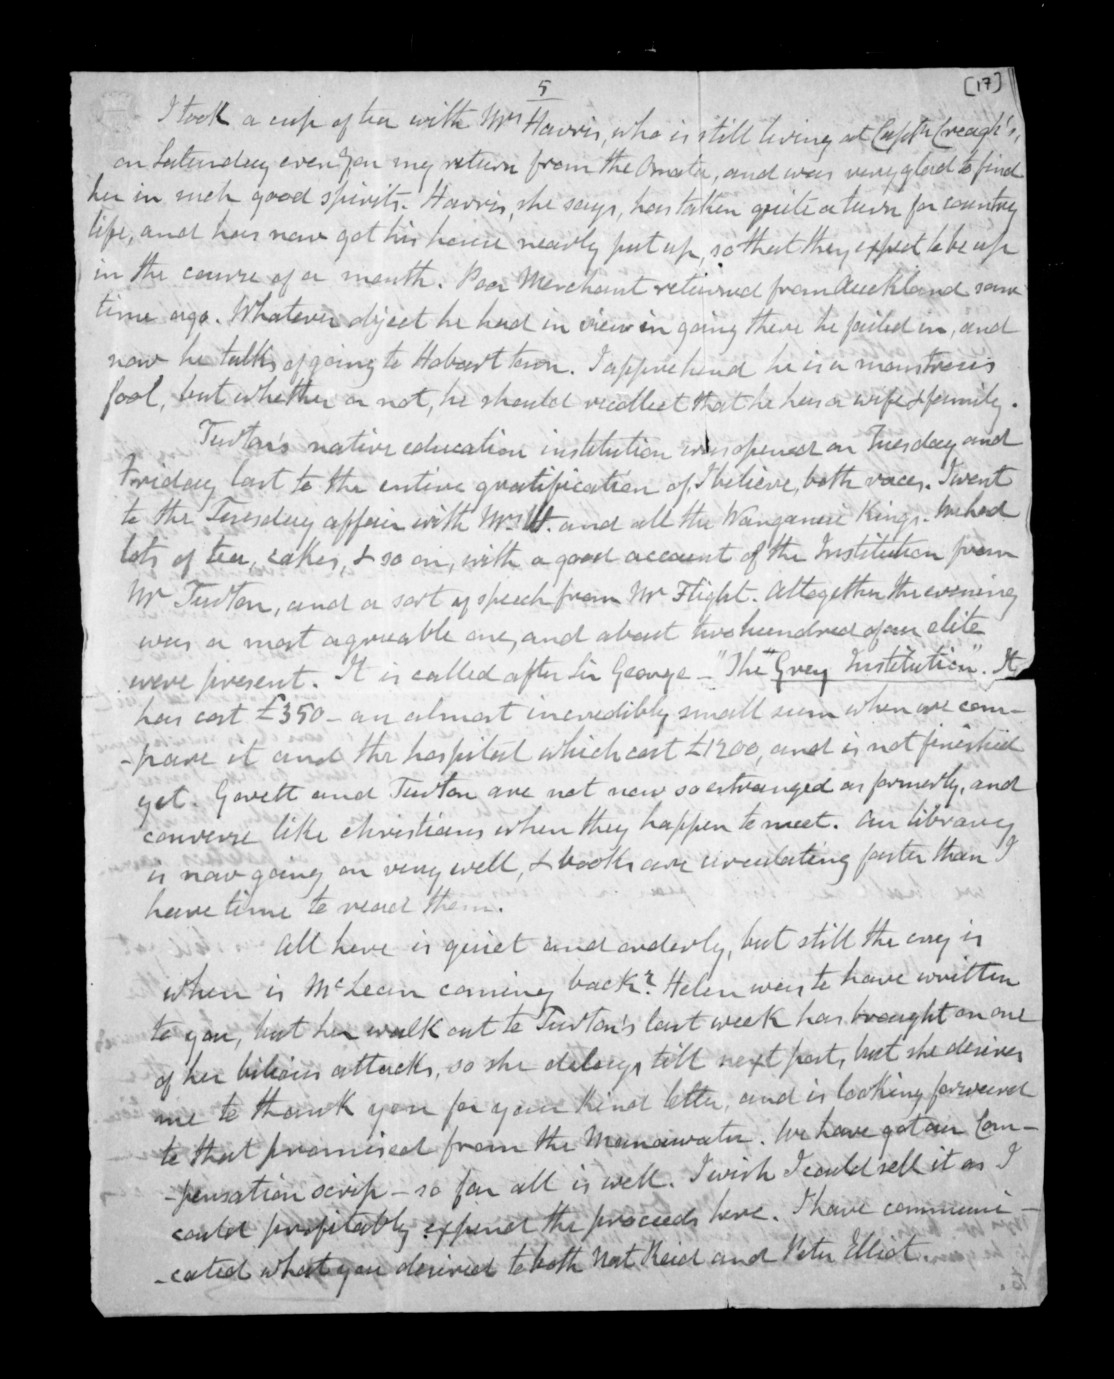 5
[17]
I took a cup of tea with Mrs Harris, who is still living at Captn Creagh's,
on Saturday eveng on my return from the Omata, and was very glad to find
her in such good spirits. Harris, she says, has taken quite a turn for country
life, and has now got his house nearly put up, so that they expect to be up
in the course of a month. Poor Merchant returned from Auckland some
time ago. Whatever object he had in view in going there he failed in, and
now he talks of going to Hobart town. I apprehend he is a monstrous
fool, but whether or not, he should recollect that he has a wife & family.
Turton's native education institution was opened on Tuesday and
Friday last to the entire gratification of, I believe, both races. I went
to the Tuesday affair with Mrs H. and all the Wanganui Kings. We had
lots of tea, cakes, & so on, with a good account of the Institution from
Mr Turton, and a sort of speech from Mr Flight. Altogether the evening
was a most agreeable one, and about two hundred of our elite
were present. It is called after Sir George – "The "Grey Institution". It
has cost £350 – an almost incredibly small sum when we com–
–pare it and the hospital which cost £1200, and is not finished
yet. Govett and Turton are not now so estranged as formerly, and
converse like christians when they happen to meet. Our library
is now going on very well, & books are circulating faster than I
have time to read them.
All here is quiet and orderly, but still the cry is
when is McLean coming back? Helen was to have written
to you, but her walk out to Turton's last week has brought on one
of her bilious attacks, so she delays till next post, but she desires
me to thank you for your kind letter, and is looking forward
to that promised from the Manawatu. We have got our Com–
–pensation scrip – so far all is well. I wish I could sell it as I
could profitably expend the proceeds here. I have communi–
–cated what you desired to both Nat Reid and Peter Elliot.